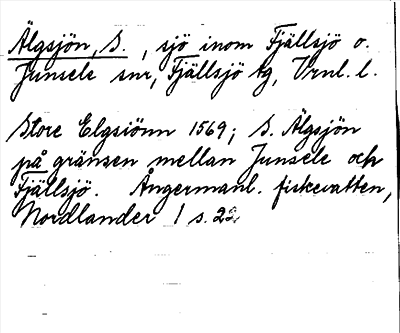 Älgsjön, S. , sjö inom Fjällsjö o.
Junsele snr, Fjällsjö tg, Vrnl. l.
Store Elgsiönn 1569; S. Älgsjön
på gränsen mellan Junsele och
Fjällsjö. Ångermanl. fiskevatten,
Nordlander 1 s. 22.